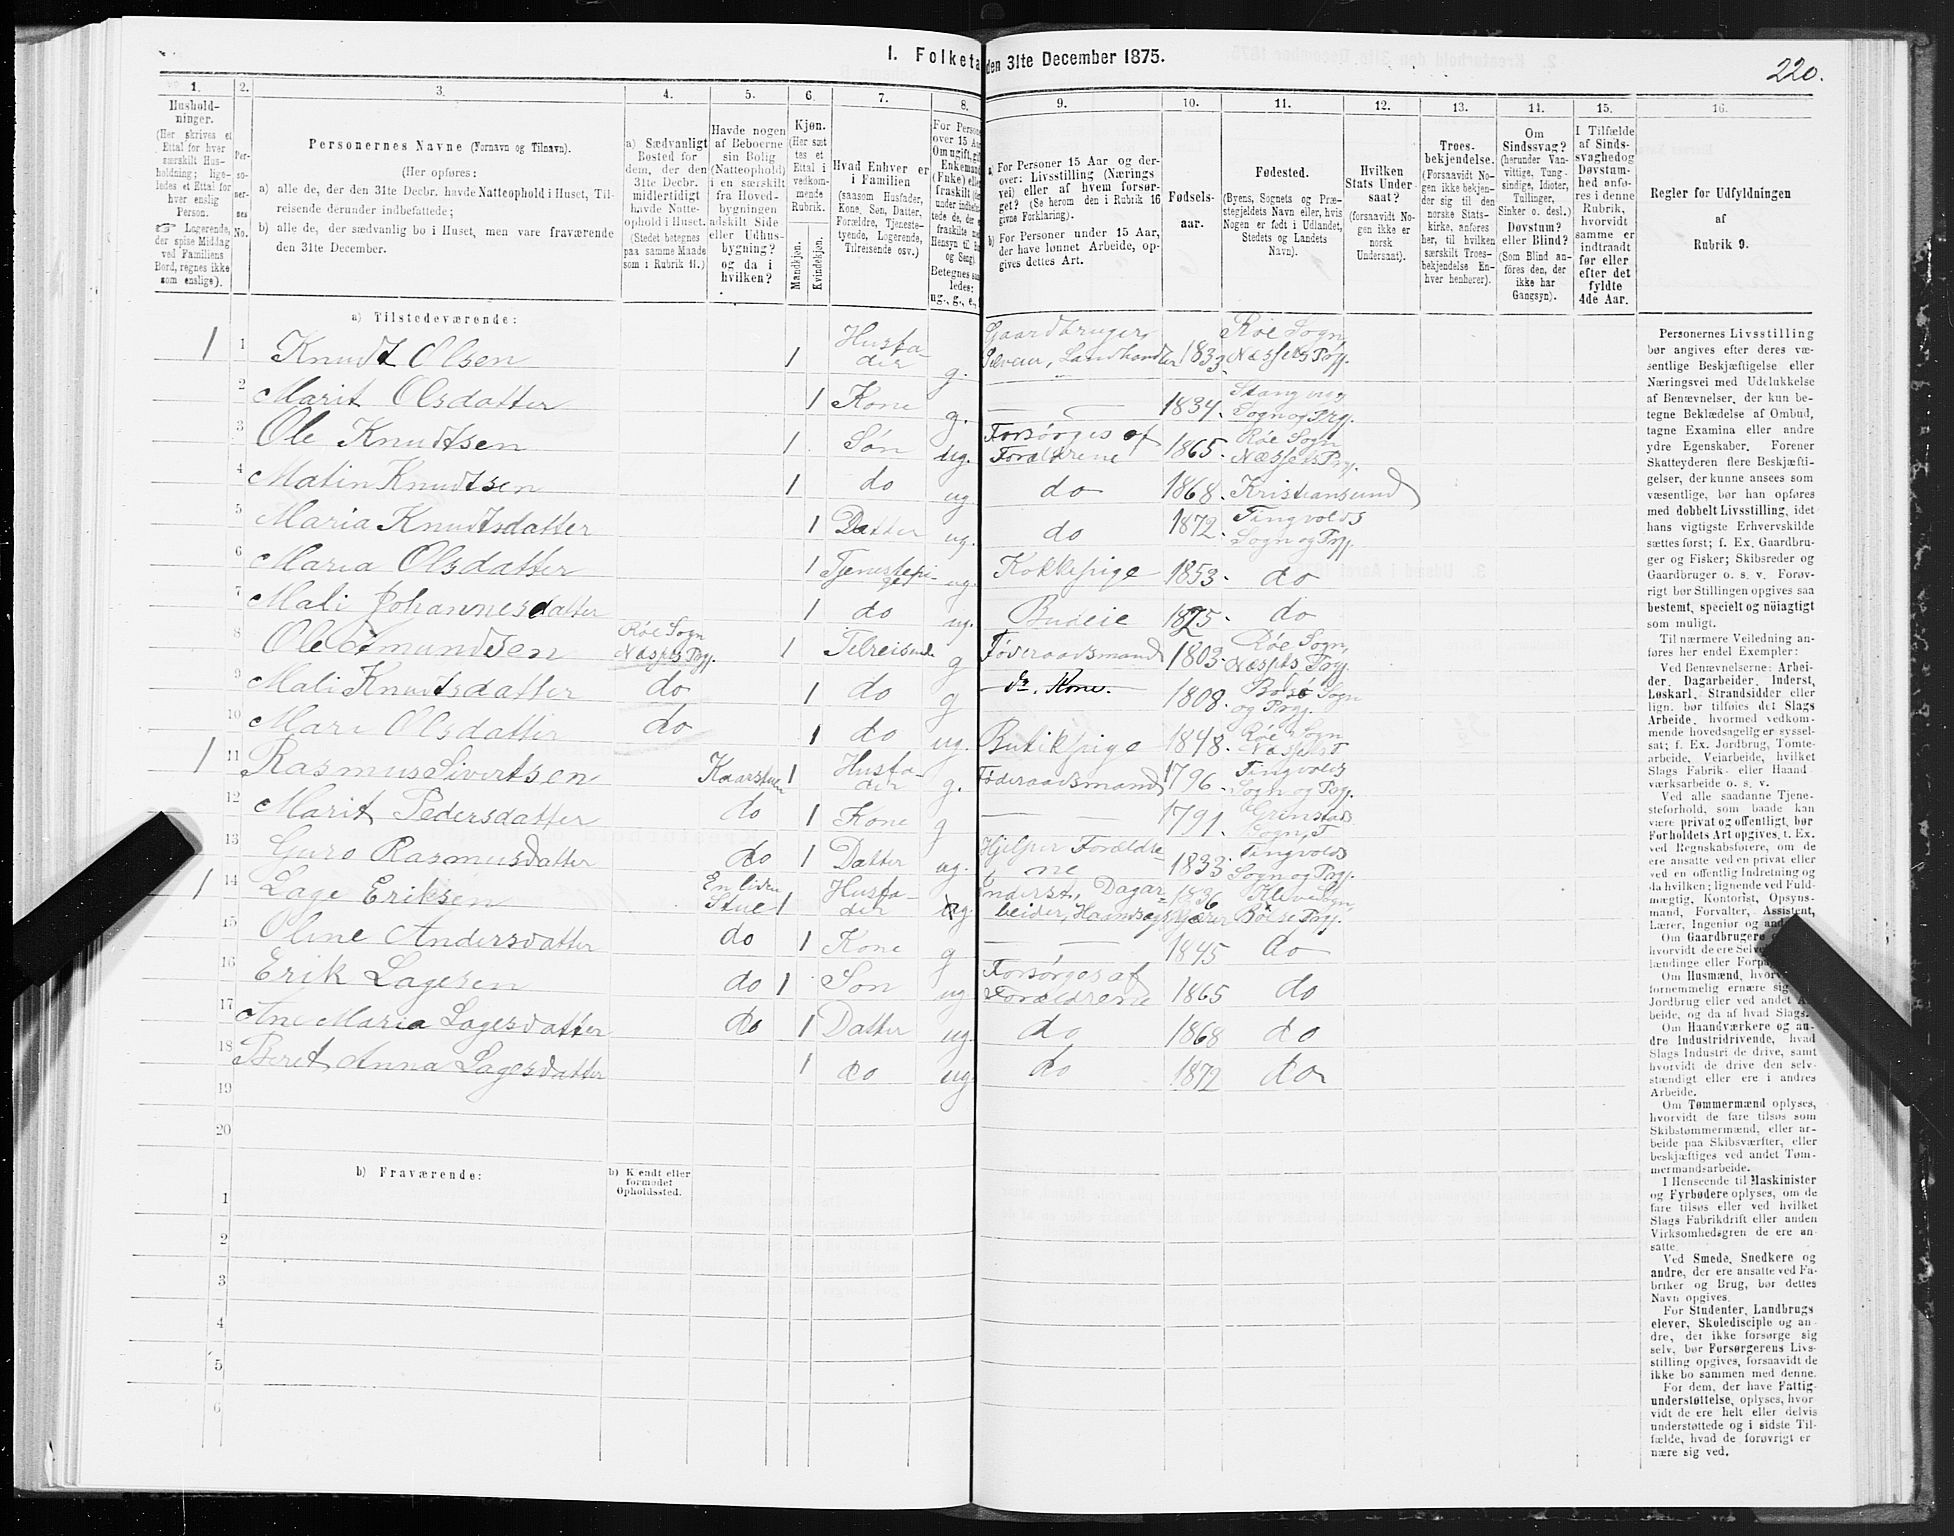 1. Folketæ den 31te December 1875.
220.
1.
2.
3.
4.
5.
6.
7.
8.
9.
10.
11.
12.
13.
14.
15.
16.
Hushold-
ninger.
(Her skrives et
Ettal for hver
særskilt Hus-
holdning; lige-
ledes et Ettal for
hver enslig
Person.
☞ Logerende,
der spise Middag
ved Familiens
Bord, regnes ikke
som enslige).
Per-
so-
ner-
nes
No.
Personernes Navne (Fornavn og Tilnavn).
(Her opføres:
a) alle de, der den 31te Decbr. havde Natteophold i Huset, Til-
reisende derunder indbefattede;
b) alle de, der sædvanlig bo i Huset, men vare fraværende
den 31te December.
a) Sædvanligt
Bosted for
dem, der den
31te Decbr.
midlertidigt
havde Natte-
ophold i Huset.
(Stedet betegnes
paa samme Maade
som i Rubrik 11.)
Havde nogen
af Beboerne
sin Bolig
(Natteophold)
i en særskilt
fra Hoved-
bygningen
adskilt Side-
eller Udhus-
bygning?
og da i
hvilken?
Kjøn.
(Her sæt
tes et
Ettal i
vedkom-
mende
Rubrik.
Mandkjøn.
Kvindekjøn.
Hvad Enhver er
i Familien
(saasom Husfader,
Kone, Søn, Datter,
Forældre, Tjeneste-
tyende, Logerende,
Tilreisende osv.)
For Persone
over 15 Aa
Om ugift, gift
Enkemand
(Enke) elle
fraskilt (de
Betegnes saa
ledes:
ug., g., e.,
a) For Personer 15 Aar og der-
over: Livsstilling (Nærings
vei) eller af hvem forsør-
get? (Se herom den i Rubrik 16
givne Forklaring).
b) For Personer under 15 Aar,
der have lønnet Arbeide, op-
gives dettes Art.
Fødsels-
aar.
Fødested.
(Byens, Sognets og Præ-
stegjeldets Navn eller, hvis
Nogen er født i Udlandet,
Stedets og Landets
Navn).
Hvilken
Stats Under-
saat?
(forsaavidt No-
gen ikke er
norsk
Undersaat).
Troes-
bekjendelse.
(Forsaavidt No-
gen ikke bekjen-
der sig til den
norske Stats-
kirke, anføres
her, til hvilken
særskilt Troes-
bekjendelse En-
hver henhører).
Om
Sindssvag?
(herunder Van-
vittige, Tung-
sindige, Idioter,
Tullinger,
Sinker o. desl.)
Døvstum?
eller Blind?
(Som Blind an-
føres den, der
ikke har
Gangsyn).
I Tilfælde
af Sinds-
svaghed og
Døvstum-
hed anfø-
res i denne
Rubrik,
hvorvidt
samme er
indtraadt
før eller
efter det
fyldte
4de Aar.
Regler for Udfyldningen
af
Rubrik 9.
a) Tilstedeværende:
1 1 Knudt Olsen 1 Husfa-der g. Gaardbruger, Selveier, Landhandler 1833 Røe Sogn, Næssets Prgj.
2 Marit Olsdatter 1 Kone g. — 1834. Stangvig Sogn og Prgj.
3 Ole Knudtsen 1 Søn ug. Forsørges af Forældrene 1865. Røe Sogn Næssets Prgj.
4 Matin Knudtsen 1 do ug. do 1868. Kristiansund
5 Maria Knudtsdatter 1 Datter ug. do 1872. Tingvolds Sogn og Prgj.
6 Maria Olsdatter 1 Tjenestepi-ge ug. Kokkepige 1853. do
7 Mali Johannesdatter 1 do ug. Budeie do
8 Ole Amundsen Røe Sogn Næssets Prgj. 1 Tilreisende g Føderaadsmand 1803. Røe Sogn, Næssets Prgj.
9 Mali Knudtsdatter do 1 do g do. Kone. 1808. Bolsø Sogn og Prgj.
10 Mari Olsdatter do 1 do ug. Butikpige 1848. Røe Sogn Næssets P.
1 11 Rasmus Sivertsen Kaarstuen 1 Husfa-der g. Føderaadsmand 1796. Tingvolds Sogn og Prgj.
12 Marit Pedersdatter do 1 Kone g — 1791. Sogn,
13 Guro Rasmusdatter do 1 Datter ug. Hjelper Forældre-ne 1833. Tingvolds Sogn og Prgj.
1 14 Lage Eriksen En liden Stue 1 Husfa-der g. Inderst, Dagar-beider, 1836 Kleve Sogn,
15 Oline Andersdatter do 1 Kone g — 1845 do
16 Erik Lagesen do 1 Søn ug. Forsørges af Forældrene 1865 do
17 Ane Maria Lagesdatter do 1 Datter ug. do 1868 do
18 Beret Anna Lagesdatter 1 do ug. do 1872 do
19
20
b) Fraværende:
b) Kjendt eller
formodet
Opholdssted.
1
2
3
4
5
6
Personernes Livsstilling
bør angives efter deres væ-
sentlige Beskjæftigelse eller
Næringsvei med Udelukkelse
af Benævnelser, der kun be-
tegne Beklædelse af Ombud,
tagne Examina eller andre
ydre Egenskaber. Forener
Skatteyderen flere Beskjæfti-
gelser, der kunne ansees som
væsentlige, bør han opføres
med dobbelt Livsstilling, idet
hans vigtigste Erhvervskilde
sættes først; f. Ex. Gaardbru-
ger og Fisker; Skibsreder og
Gaardbruger o. s. v. Forøv-
rigt bør Stillingen opgives saa
bestemt, specielt og nöiagtigt
som muligt.
Til nærmere Veiledning an-
føres her endel Exempler:
Ved Benævnelserne: Arbei-
der, Dagarbeider, Inderst,
Løskarl, Strandsidder eller
lign. bør tilføies det Slags
Arbeide, hvormed vedkom-
mende hovedsagelig er syssel-
sat; f. Ex. Jordbrug, Tomte-
arbeide, Veiarbeide, hvilket
Slags Fabrik- eller Haand-
værksarbeide o. s. v.
Ved alle saadanne Tjene-
steforhold, som baade kan
være privat og offentligt, bør
Forholdets Art opgives, t. Ex.
ved Regnskabsførere, om de
ere ansatte ved en privat eller
ved en offentlig Indretning og
da hvilken; lignende ved Fuld-
mægtig, Kontorist, Opsyns-
mand, Forvalter, Assistent,
Lærer, Ingeniør og
Om Gaardbrugere
hvorvidt de ere
lændinge eller
Om Husmænd,
fornemmelig ernære sig
Jordbrug eller ved andet
beide, og da af hvad Slags.
Om Haandværkere og an-
dre Industridrivende, hvad
Slags Industri de drive, samt
hvorvidt de drive den selv-
stændigt eller ere i andres
Arbeide.
Om Tømmermænd oplyses,
hvorvidt de fare tilsøs som
Skibstømmermænd, eller ar-
beide paa Skibsværfter, eller
beskjæftiges ved andet Tøm-
mermandsarbeide.
I Henseende til Maskinister
og Fyrbødere oplyses, om de
fare tilsøs eller ved hvilket
Slags Fabrikdrift eller anden
Virksomhedsgren de ere an-
satte.
Ved Smede, Snedkere og
andre, der ere ansatte ved Fa-
briker og Brug, bør dettes
Navn opgives.
For Studenter, Landbrugs-
elever, Skoledisciple og an-
dre, der ikke forsørge sig
selv, bør Forsørgerens Livs-
stilling opgives, forsaavidt de
ikke bo sammen med denne.
For dem, der have Fattig-
understøttelse, oplyses, hvor-
vidt de ere helt eller delvis
understøttede og i sidste Til-
fælde, hvad de forøvrigt er-
nære sig ved.